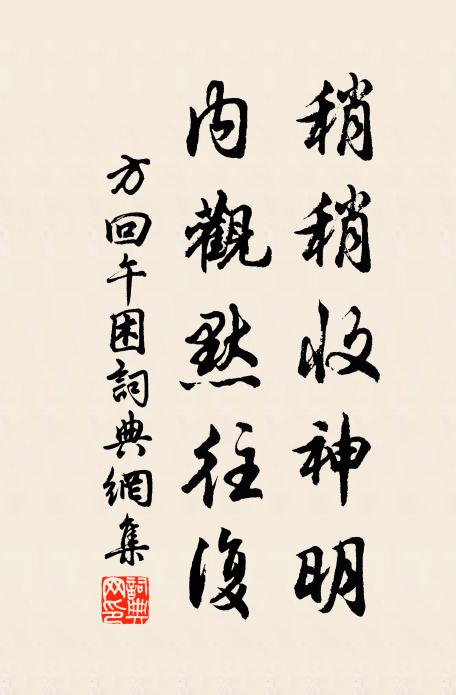 稍稍收神明
内觀默往復
方回午困詞典網集
詞典网印